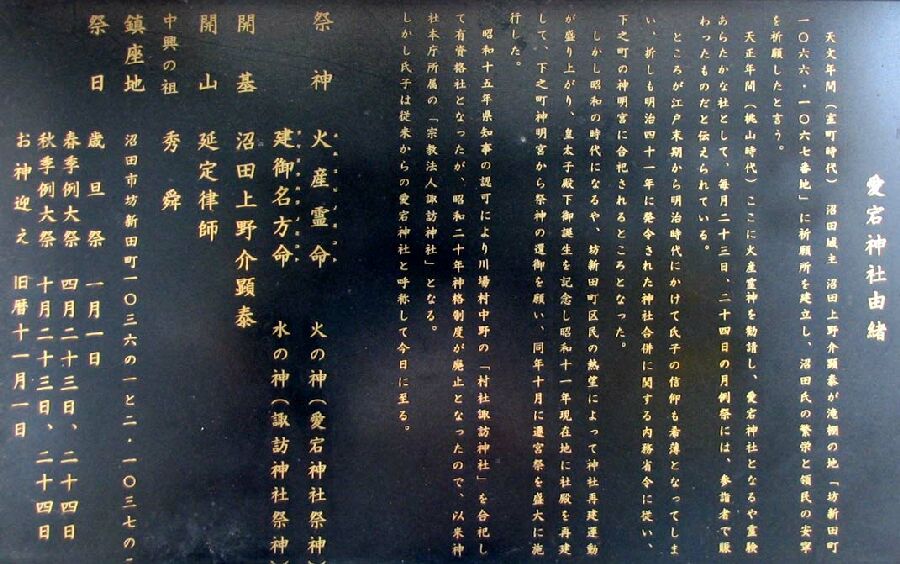 愛宕神社由緒
天文年間（室町時代）　沼田城主　沼田上野介顕泰が滝棚の地「坊新田町
一〇六六・一〇六七番地」に祈願所を建立し、沼田氏の繁栄と領民の安寧
を祈願したと言う。
天正年間（桃山時代）ここに火産霊神を勧請し、愛宕神社となるや霊験
あらたかな社として、毎月二十三日、二十四日の月例祭には、参詣者で賑
わったものだと伝えられている。
ところが江戸末期から明治時代にかけて氏子の信仰も希薄となってしま
い、折しも明治四十一年に発令された神社合併に関する内務省令に従い、
下之町の神明宮に合祀されるところとなった。
しかし昭和の時代になるや、坊新田町区民の熱望によって神社再建運動
が盛り上がり、皇太子殿下御誕生を記念し昭和十一年現在地に社殿を再建
して、下之町神明宮から祭神の還御を願い、同年十月に遷宮祭を盛大に施
行した。
昭和十五年県知事の認可により川場村中野の「村社諏訪神社」を合祀し
て有資格社となったが、昭和二十年神格制度が廃止となったので、以来神
社本庁所属の「宗教法人諏訪神社」となる。
しかし氏子は従来からの愛宕神社と呼称して今日に至る。
祭神　火産霊命　火の神（愛宕神社祭神）
建御名方命　水の神（諏訪神社祭神）
開基　沼田上野介顕泰
開山　延定律師
中興の祖　秀舜
鎮座地　沼田市坊新田町一〇三六の一と二・一〇三七の
祭日　歳旦祭　一月一日
春季例大祭　四月二十三日、二十四日
秋季例大祭　十月二十三日、二十四日
お神迎え　旧暦十一月一日